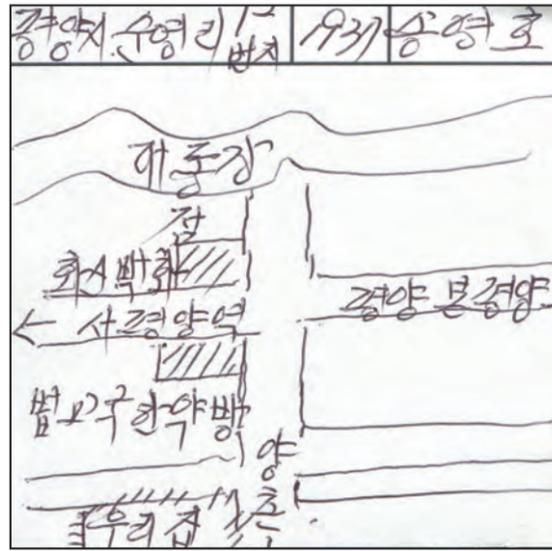 평양시 순영리 12번지 1937 송영호
대동강
점
화신백화
평양 본평양
← 서평양역
범고구한약방
양
우리집 촌